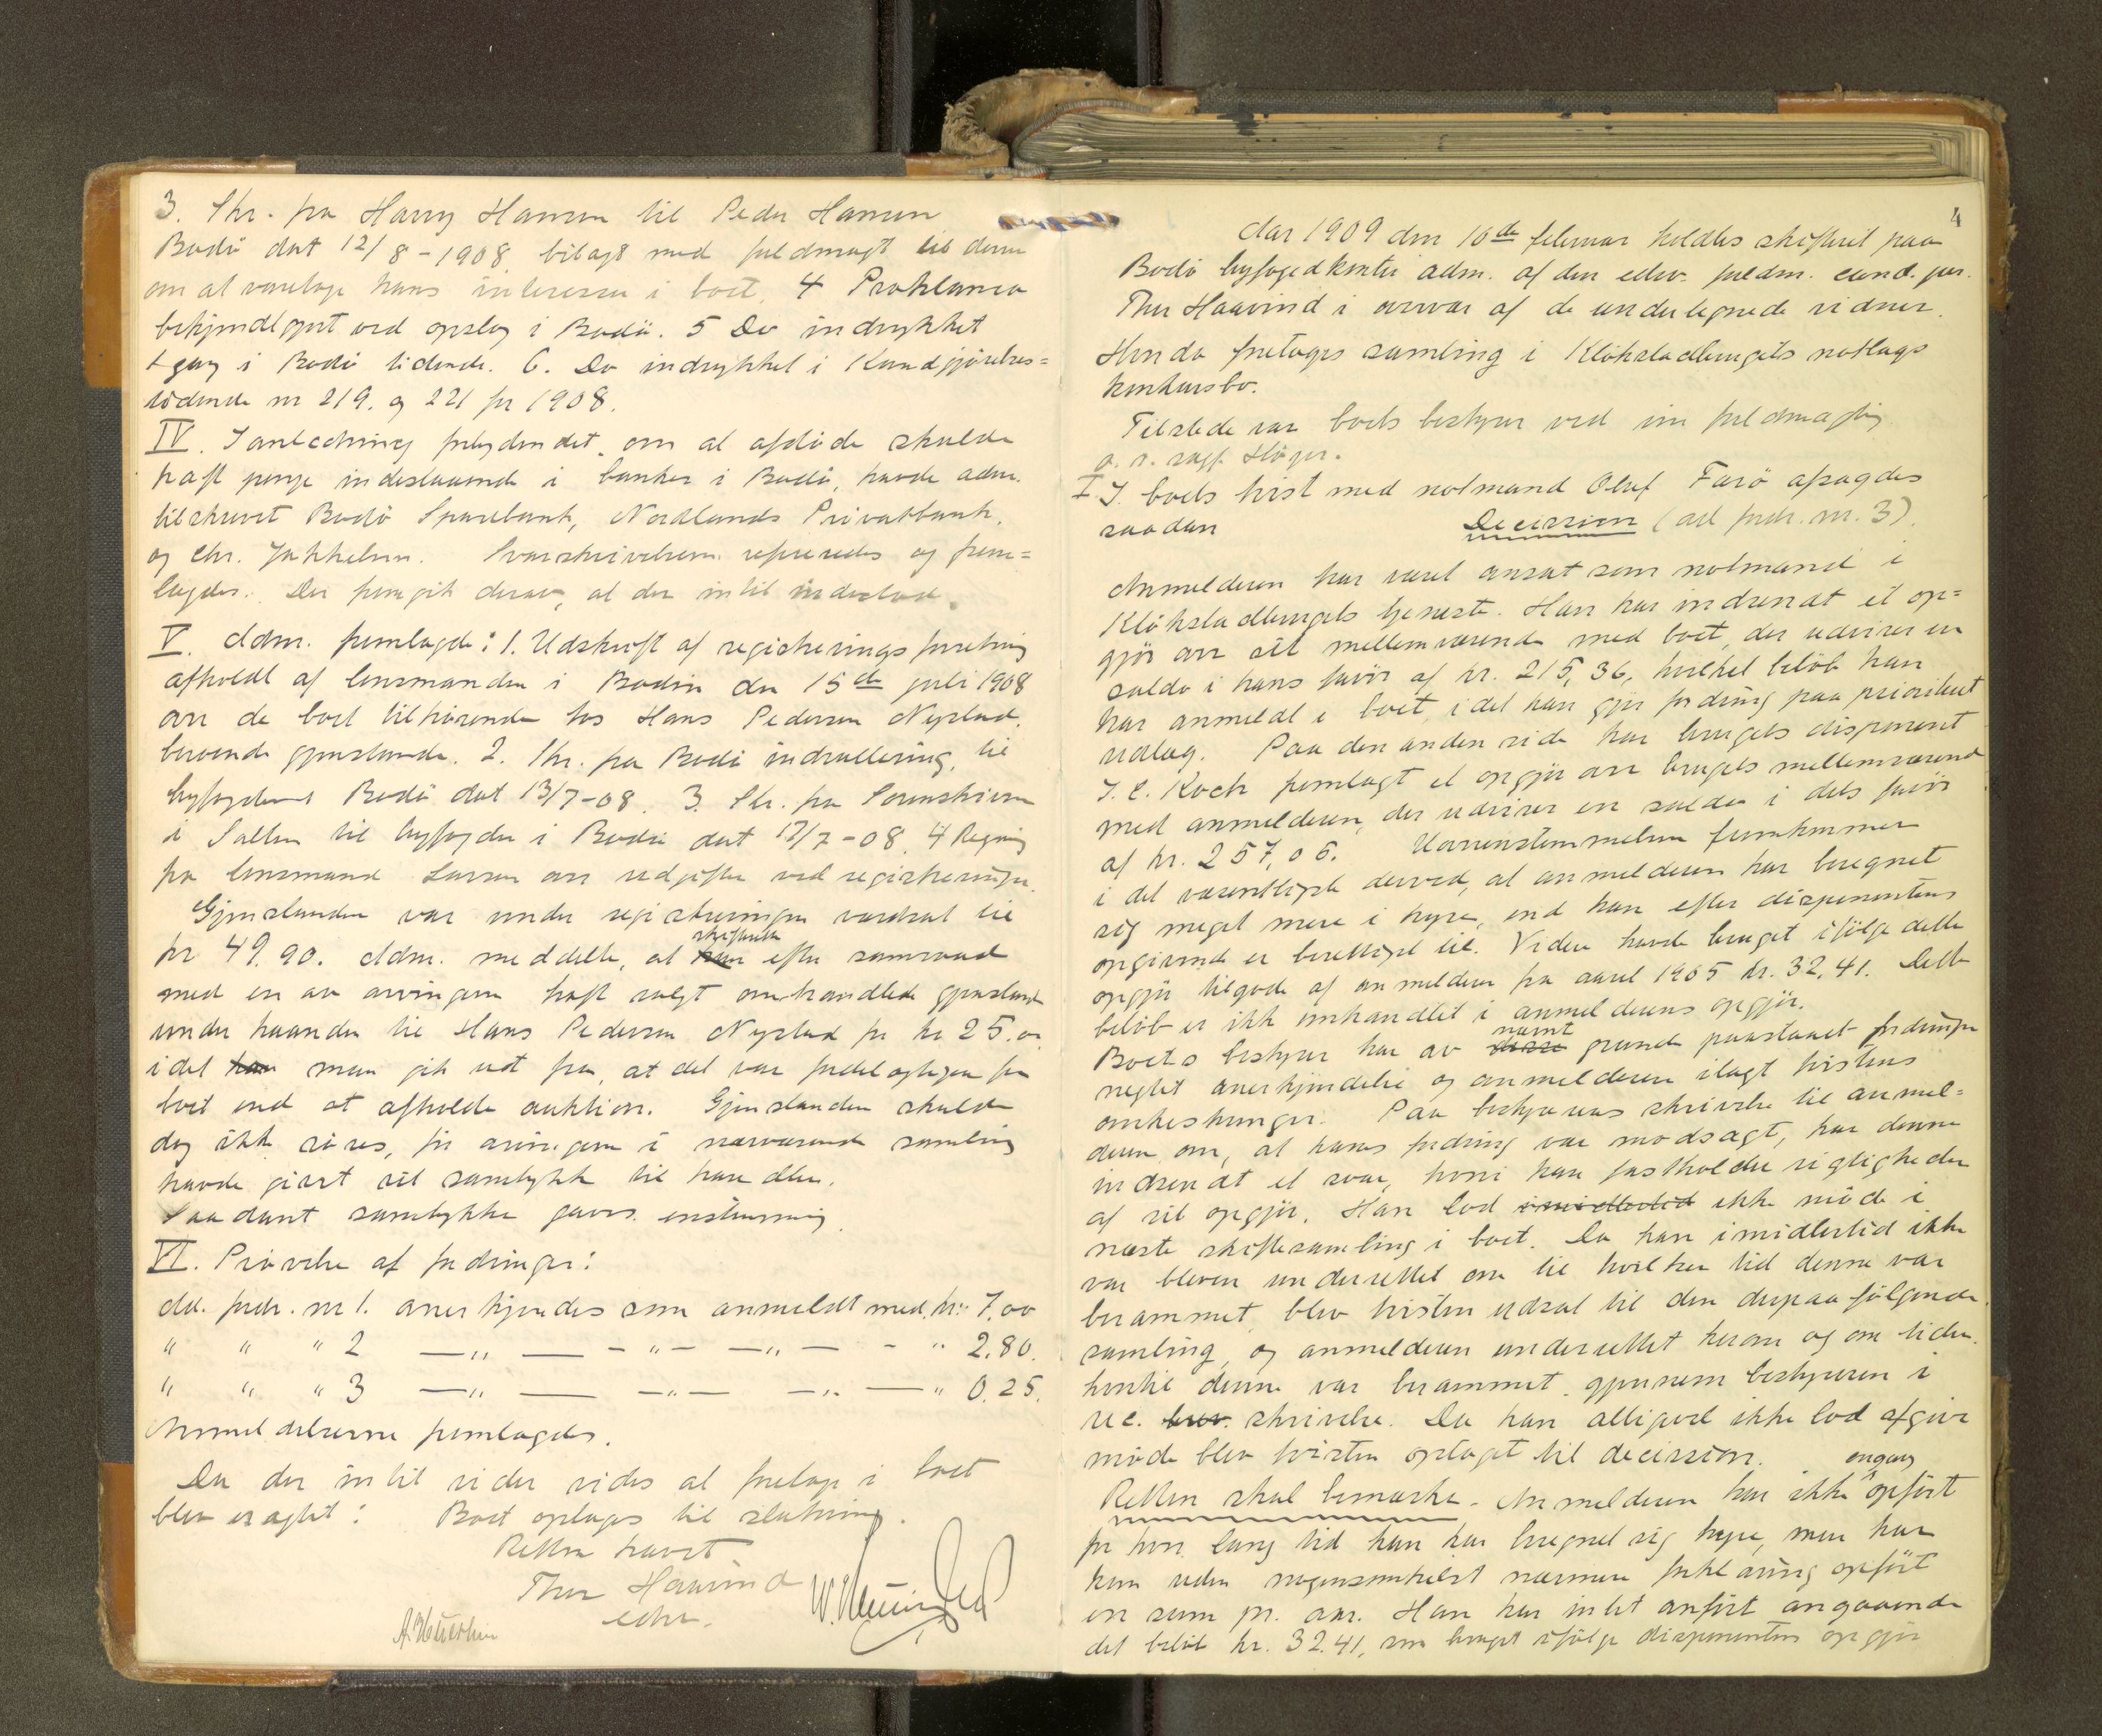 3. Skr. fra Harry Hansen til Peder Hansen
Bodö dat 12/8-1908 bilagt med fuldmagt til denne
om at varetage hans interesser i boet. 4 Proklama
bekjendtgjort ved opslag i Bodö. 5 Do indrykket
1 gang i Bodö tidende. 6. Do indrykket i Kundgjörelses=
tidende nr 219. og 221 for 1908.
IV. I anledning forlydendet om at afdöde skulde
haft penge indestaaende i banker i Bodö, havde adm.
tilskrevet Bodö Sparebank, Nordlands Privatbank,
og Chr. Jakhelln. Svarskrivelserne refereredes og frem=
lagdes. Der fremgik derav, at der intet indestod.
V. Adm. fremlagde: 1. Udskrift af registreringsforretning
afholdt af lensmanden i Bodin den 15de juli 1908
over de boet tilhörende hos Hans Pedersen Nystad
beroende gjenstande. 2. Skr. fra Bodö indrullering til
byfogden i Bodö dat 13/7-08. 3. Skr. fra Sorenskriveren
i Salten til byfogden i Bodö dat 17/7-08. 4 Regning
fra lensmand Larsen over udgifter ved registreringen.
Gjenstanden var under registreringen vurderet til
kr 49.90. Adm. meddelte, at han skifteretten efter samraad
med en av arvingerne haft solgt omhandlede gjenstande
under haanden til Hans Pedersen Nystad for kr 25.00
idet han man gik ud fra, at det var fordelagtigere for
boet end at afholde auktion. Gjenstanden skulde
dog ikke röres, för arvingerne i nærværende samling
havde givet sit samtykke til handelen.
Saadant samtykke gaves enstemmig.
VI. Prövelse af fordringer:
Ad. fordr. nr 1. anerkjendes som anmeldt med kr: 7,00
" " " 2 —"— —"— —"— - " 2.80.
" " " 3 —"— —"— —"— " 0.25.
Anmeldelserne fremlagdes.
Da der intet videre vides at foretage i boet
blev eragtet: Boet optages til slutning.
Retten hævet
Thor Haavind
edsv.
4
Aar 1909 den 10de februar holdtes skifteret paa
Bodö byfogedkontor adm. af den edsv. fuldm. cand. jur.
Thor Haavind i overvær af de undertegnede vidner.
Hvorda foretoges samling i Klökstadbrugets notlags
konkursbo.
Tilstede var boets bestyrer ved sin fuldmægtig
o. r. sagf. Höyer.
I I boets tvist med notmand Oluf Farö afsagdes
saadan Decission (ad fordr. nr. 3)
Anmelderen har været ansat som notmand i
Klökstadbrugets tjeneste. Han har indsendt et op=
gjör over sit mellemværende med boet, der udviser en
saldo i hans favör af kr. 215,36, hvilket belöb han
har anmeldt i boet, idet han gjör fordring paa prioritert
udlæg. Paa den anden side har brugets disponent
J. C. Koch fremlagt et opgjör over brugets mellemværende
med anmelderen, der udviser en saldo i dets favör
af kr. 257,06. Uoverensstemmelsen fremkommer
i det væsentligste derved, at anmelderen har beregnet
sig meget mere i hyre, end han efter disponentens
opgivende er berettiget til. Videre havde bruget ifölge dette
opgjör tilgode af anmelderen fra aaret 1905 kr. 32,41. Dette
belöb er ikke omhandlet i anmelderens opgjör.
Boets bestyrer har av disse nævnt grunde paastaaet fordringen
negtet anerkjendelse og anmelderen ilagt tvistens
omkostninger. Paa bestyrerens skrivelse til anmel=
deren om, at hans fordring var modsagt, har denne
indsendt et svar, hvori han fastholder rigtigheden
af sit opgjör. Han lod imidlertid ikke möde i
næste skiftesamling i boet. Da han imidlertid ikke
var bleven underrettet om til hvilken tid denne var
berammet, blev tvisten udsat til den derpaa fölgende
samling, og anmelderen underrettet herom og om tiden
hvortil denne var berammet gjennem bestyreren i
rec. brev skrivelse. Da han alligevel ikke lod afgive
möde blev tvisten optaget til decission.
Retten skal bemærke. Anmelderen har ikke engang opfört
for hvor lang tid han har beregnet sig hyre, men har
kun uden nogensomhelst nærmere forklaring opfört
en sum pr. aar. Han har intet anfört angaaende
det belöb kr. 32.41, som bruget ifölge disponentens opgjör